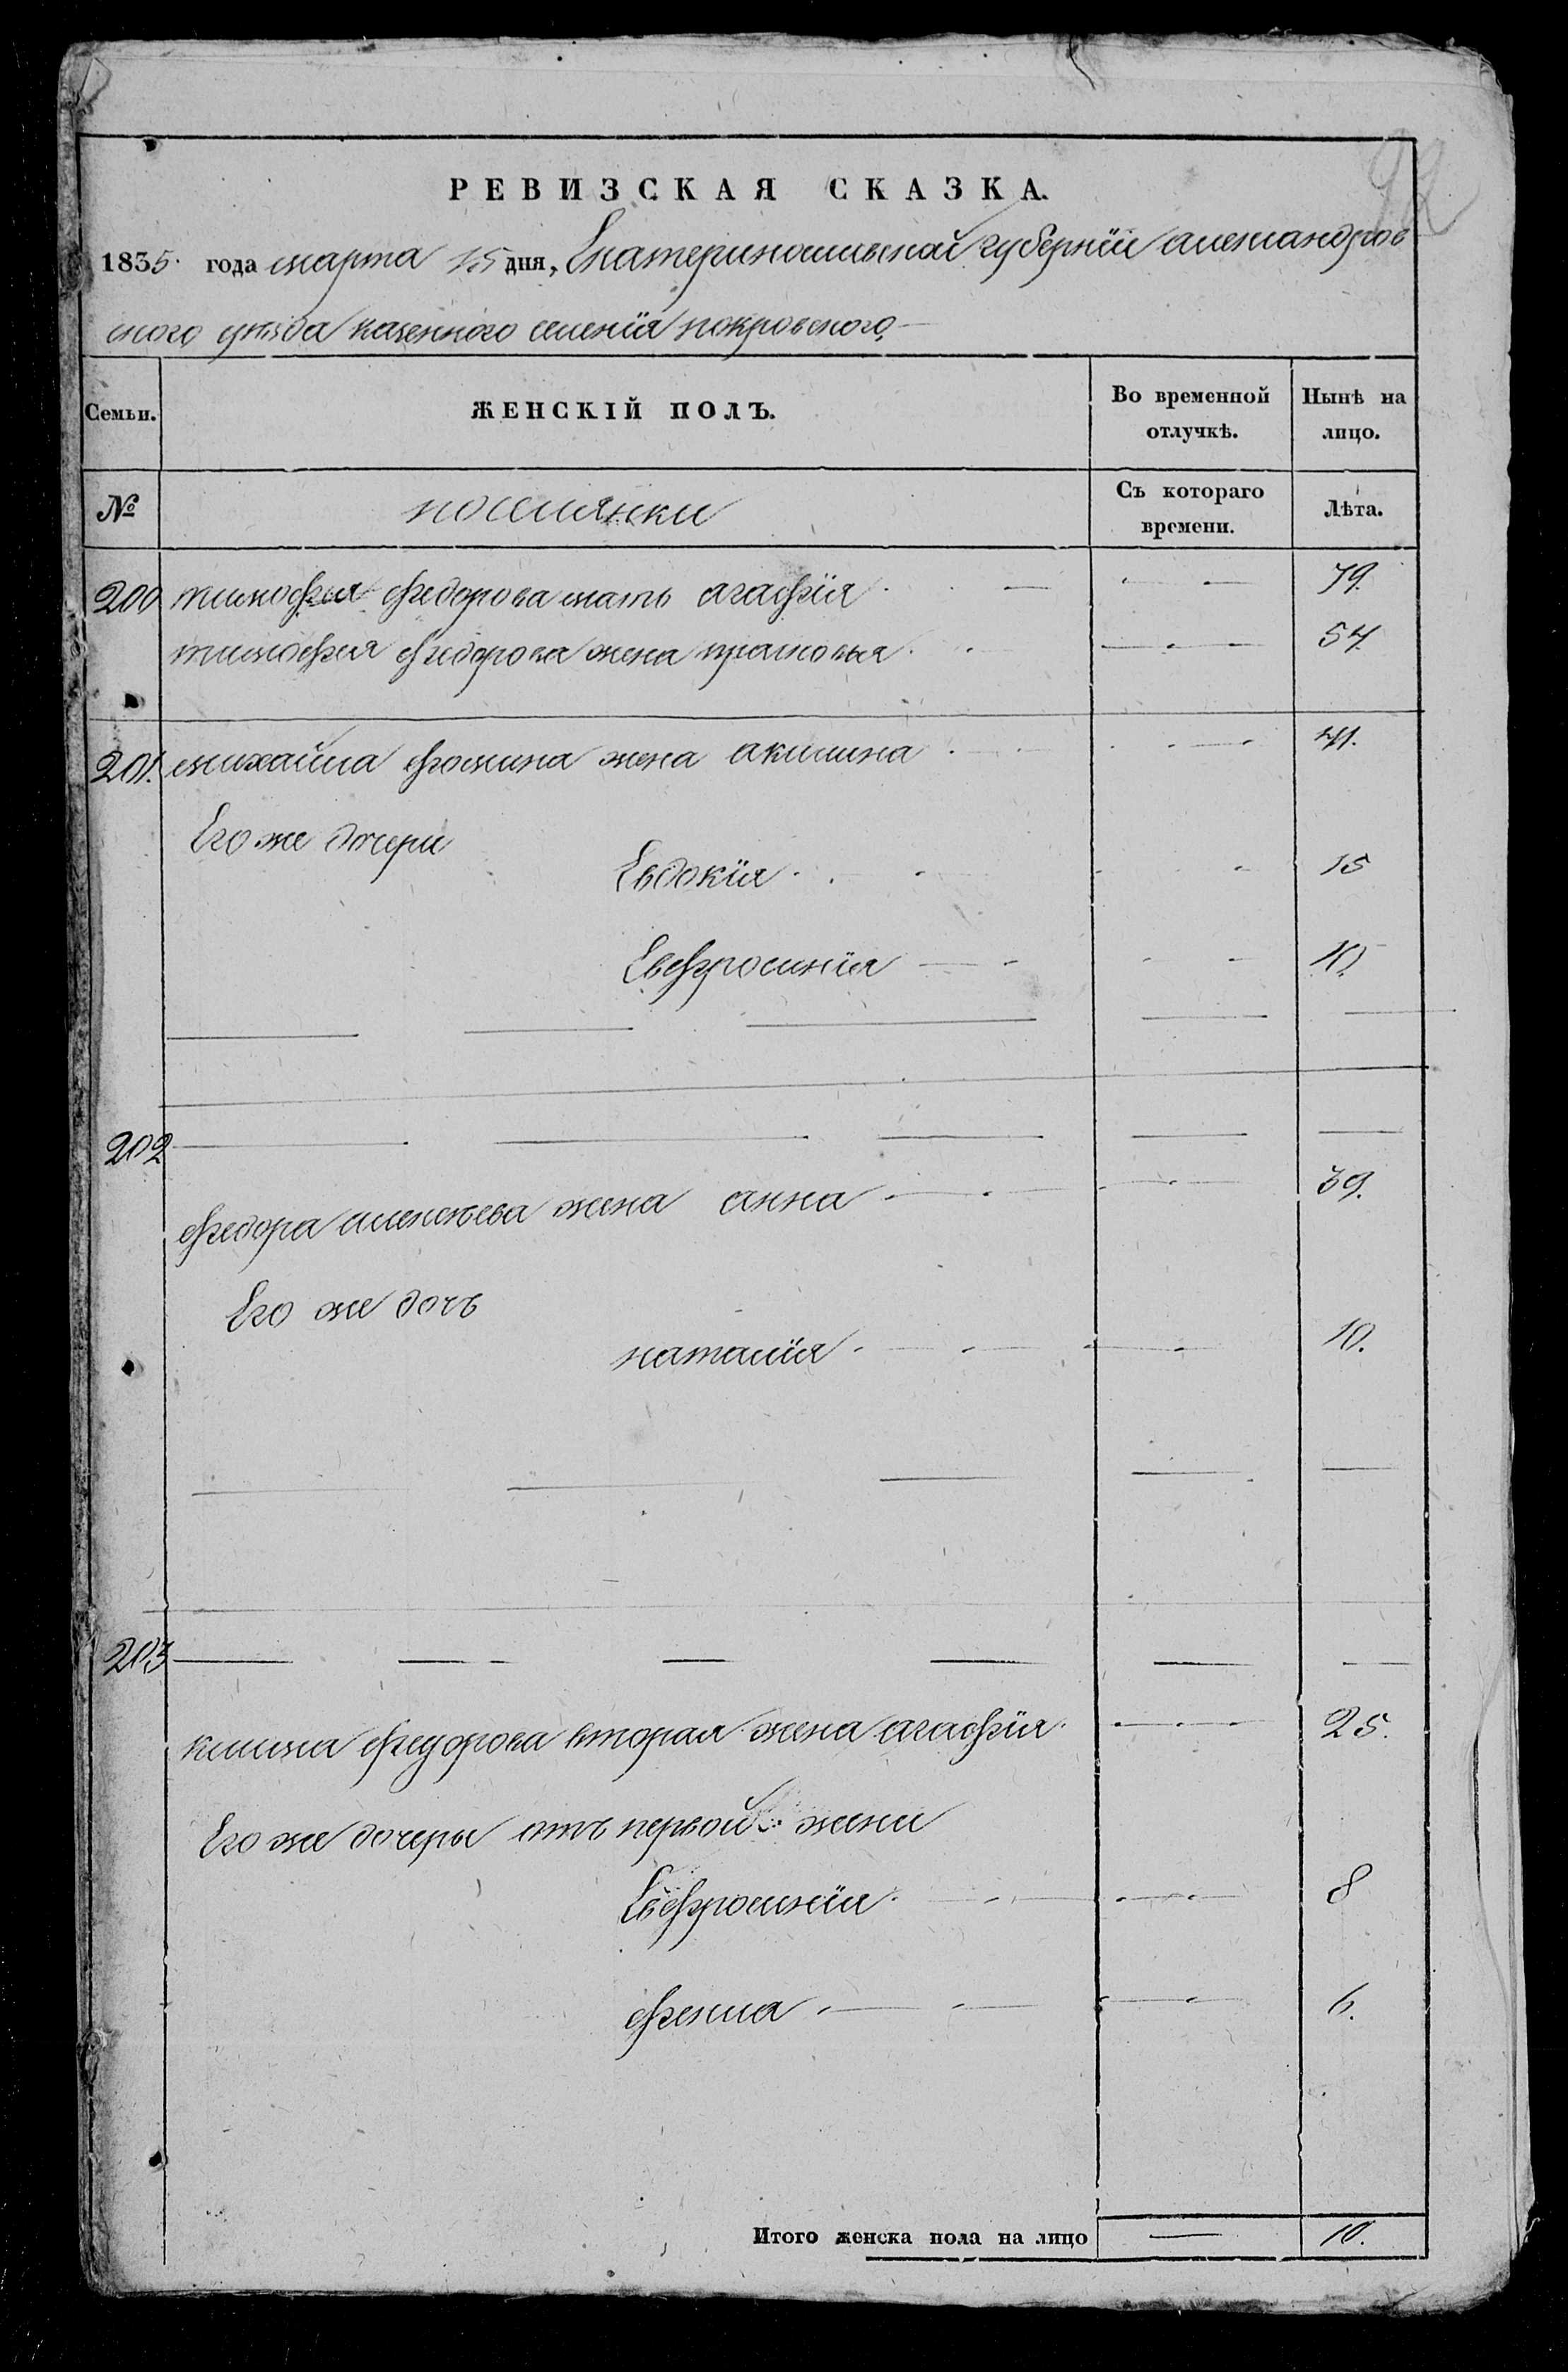 92
РЕВИЗСКАЯ СКАЗКА.
1835. года марта 15 дня, Екатеринославской губернїи александров
ского уѣзда казенного селенїя покровского,
Семьи. ЖЕНСКІЙ ПОЛЪ. Во временной отлучкѣ. Нынѣ на лицо.
№ поселянки Съ котораго времени. Лѣта.
200 тимофея федорова мать агафїя 79.
тимофея федорова жена прасковья 54.
201. михайла фомина жена акилина 41.
Его же дочери
Евдокїя 15
Евфросинїя 10.
202
федора алексѣева жена анна 39.
Его же дочь
наталїя 10.
203
клима федорова вторая жена агафїя 25.
Его же дочеры отъ первой жени
Евфросинїя 8
фекла 6.
Итого женска пола на лицо — 10.